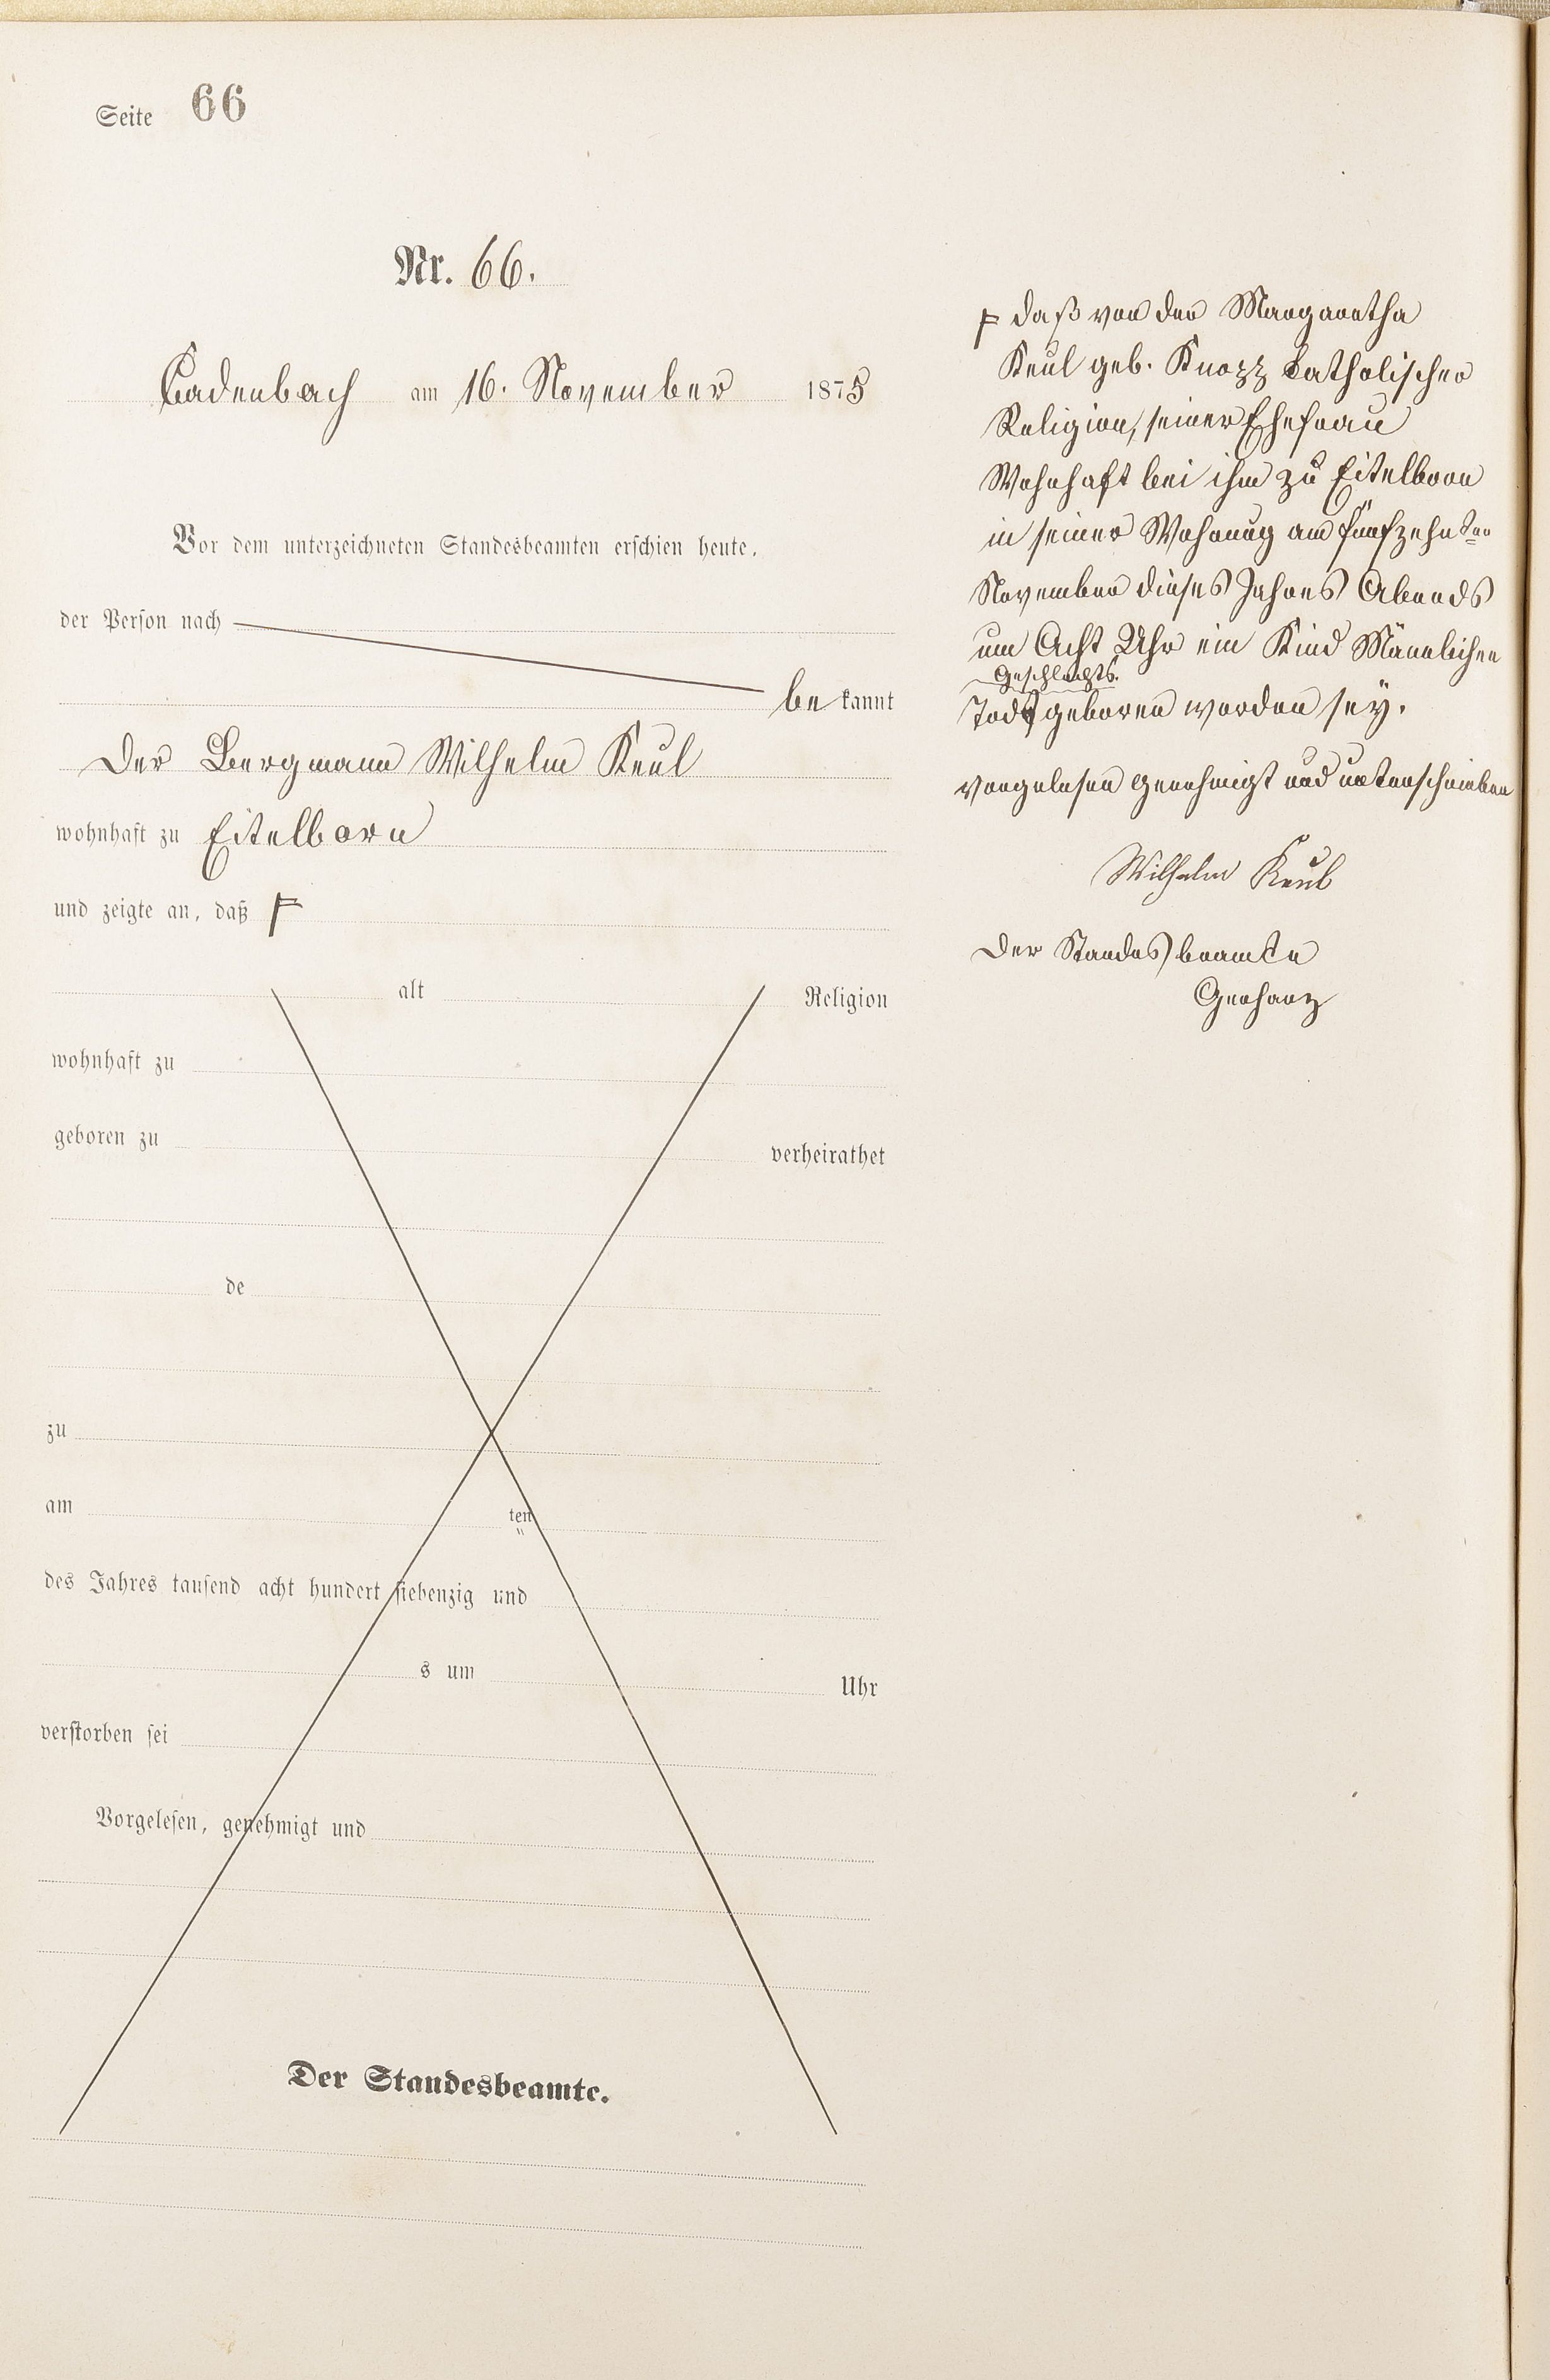 Seite 66
Nr. 66.
Cadenbach am 16. November 1875
Vor dem unterzeichneten Standesbeamten erschien heute,
der Person nach
be kannt
Der Bergmann Wilhelm Keul
wohnhaft zu Eitelborn
und zeigte an, daß
alt Religion
wohnhaft zu
geboren zu verheirathet
de
zu
am ten
des Jahres tausend acht hundert siebenzig und
s um Uhr
verstorben sei
Vorgelesen, genehmigt und
Der Standesbeamte.
daß von der Margaretha
Keul geb. Knopp katholischer
Religion, seiner Ehefrau
Wohnhaft bei ihm zu Eitelborn
in seiner Wohnung am fünfzehnten
November dieses Jahres Abends
um Acht Uhr ein Kind Männlichen
Geschlechts
Todt geboren worden sey.
vorgelesen genehmigt und unterschrieben
Wilhelm Keul
Der Standesbeamte
Gerharz